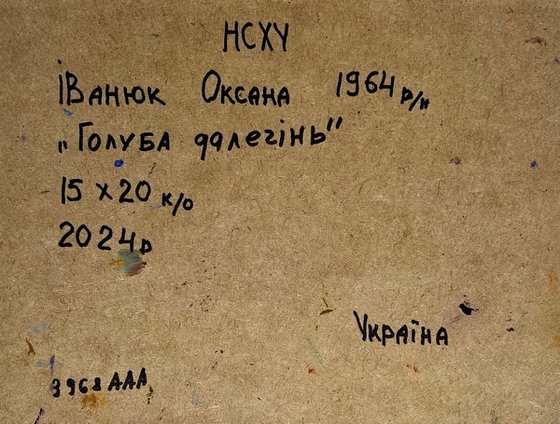 НСХУ
Іванюк Оксана 1964 р/н
„Голуба далечінь"
15 х 20 к/о
2024р
Україна
3968 ААА